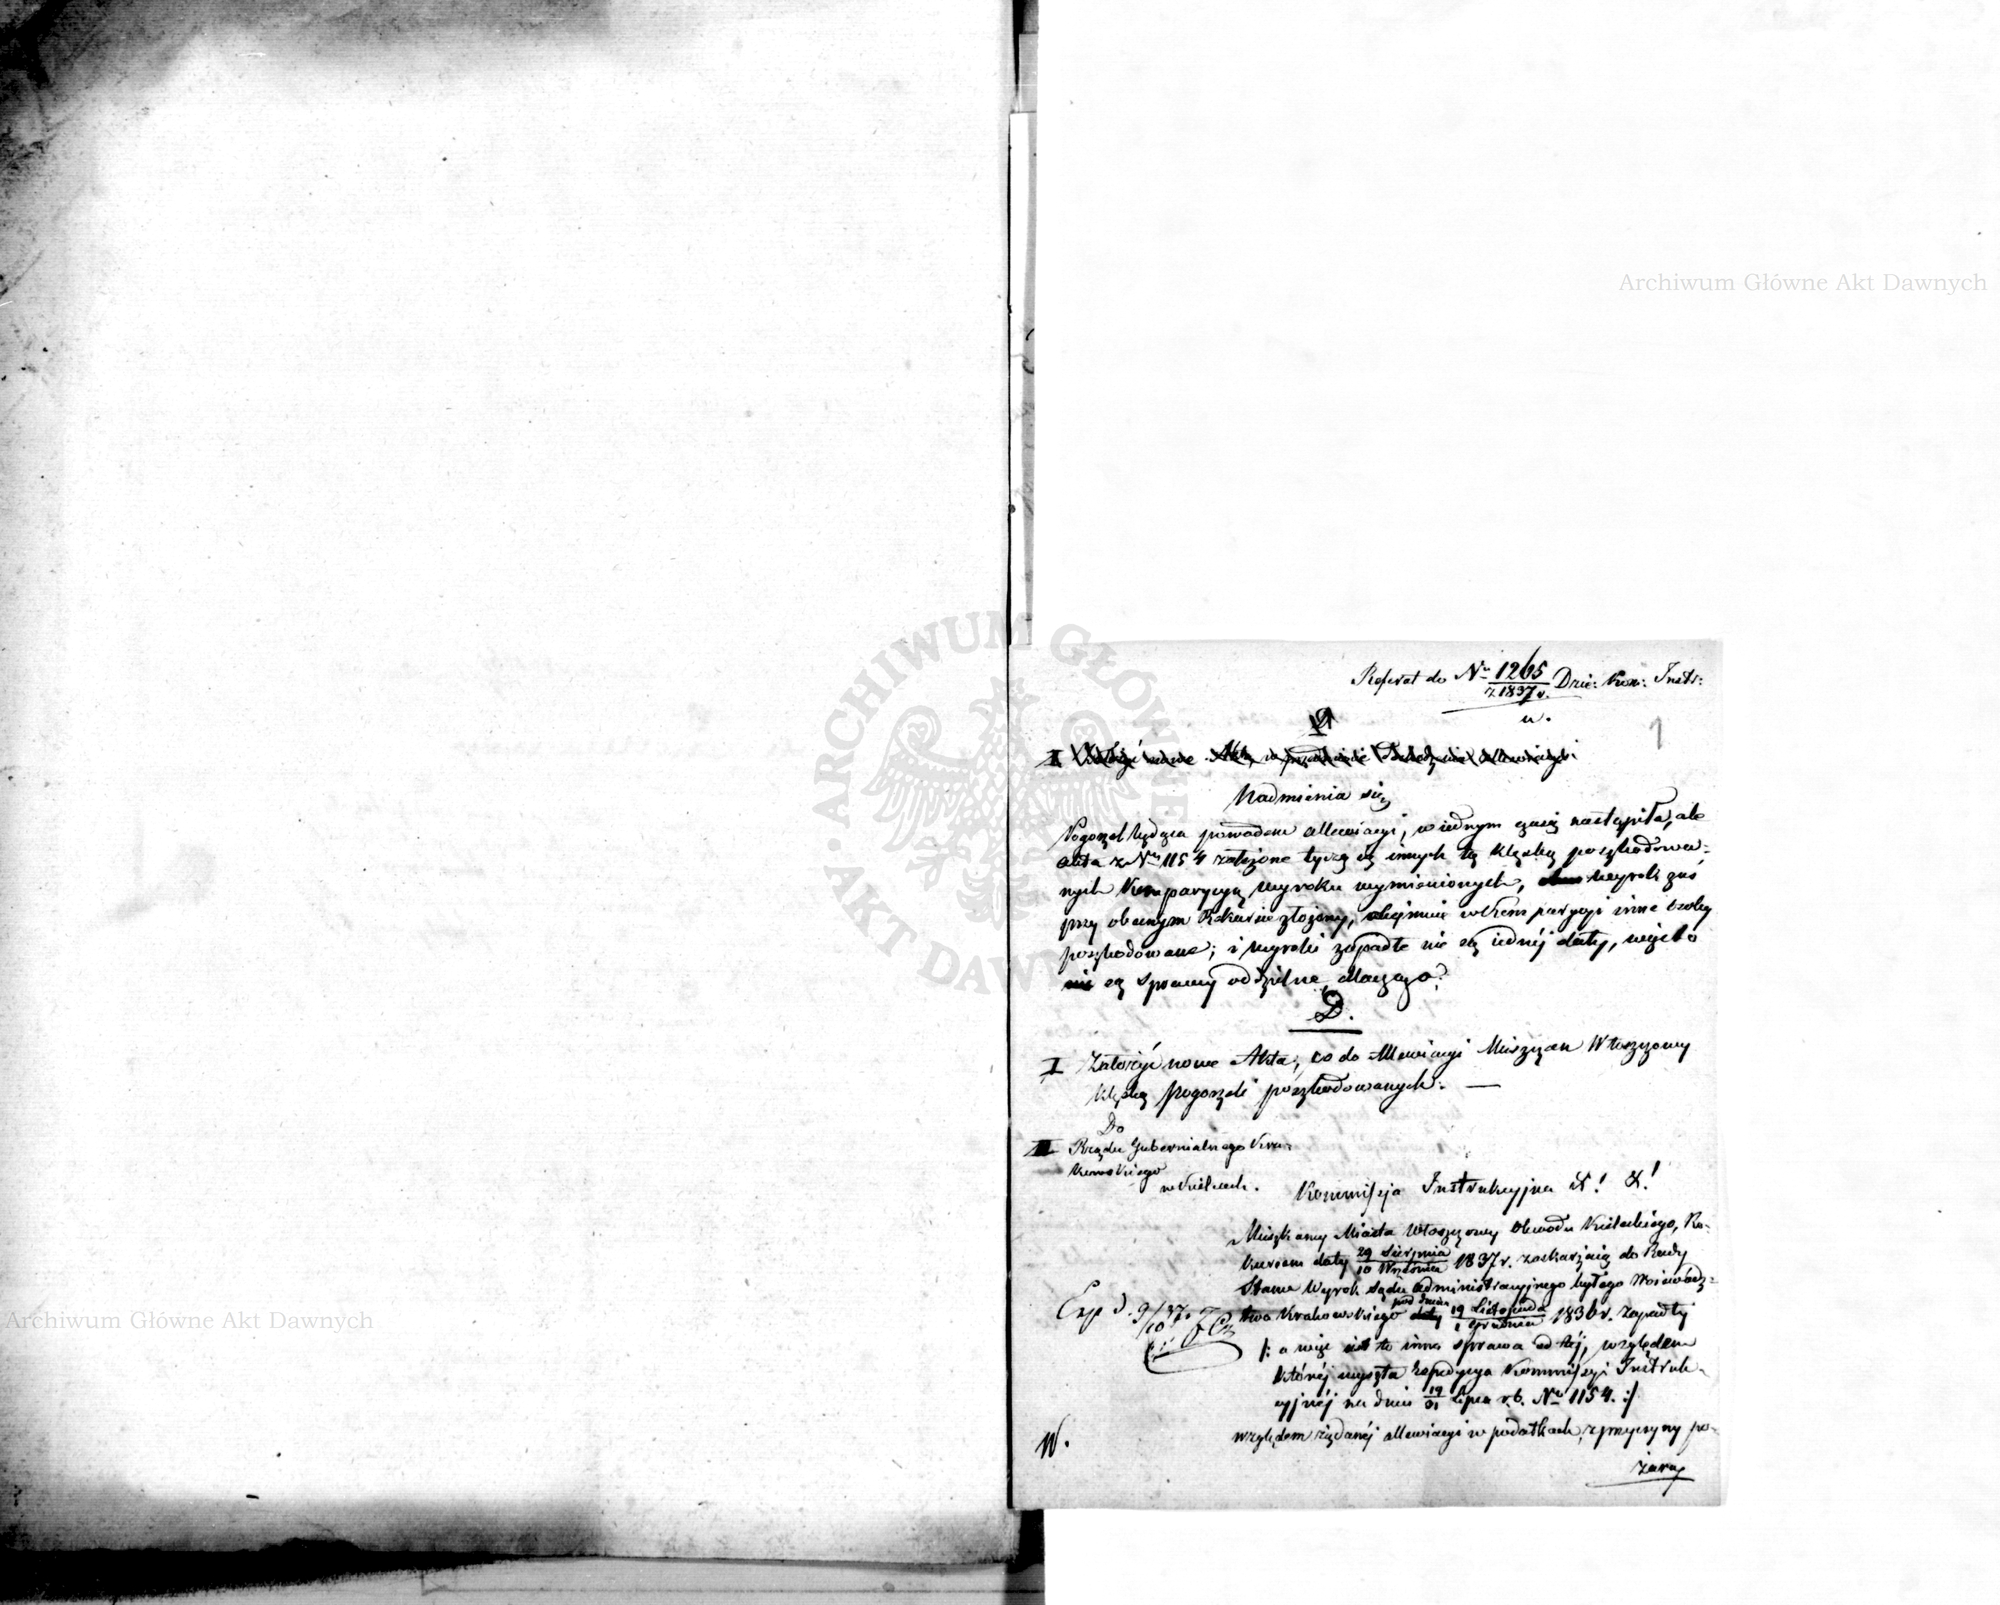 Archiwum Główne Akt Dawnych
ARCHIWUM GŁÓWNE AKT DAWNYCH
Referat do Nru 1265 Dzie: Kom: Instr:
z 1837 r.
1
I Założyć nowe Akta w przedmiocie
Nadmienia się
Pogorzel będąca powodem allewiacyi, w iednym czasie nastąpiła, ale
akta z Nru 1154 założone tyczą się innych tą klęską poszkodowa-
nych komparycyą wyroku wymienionych, wyrok zaś
przy obecnym Rekursie złożony, obejmuie w komparycyi inne osoby
poszkodowane; i wyroki zapadłe nie są iednéj daty, więc to
są sprawy oddzielne, dlaczego?
D.
I Założyć nowe Akta, co do Allewiacyi Mieszczan Włoszczowy
klęską pogorzeli poszkodowanych. —
Do
II Rządu Gubernialnego Kra-
kowskiego
w Kielcach.
Kommissyja Instrukcyjna &! &!
Mieszkańcy Miasta Włoszczowy Obwodu Kieleckiego, Re-
kursem daty 29 Sierpnia / 10 Września 1837 r. zaskarżaią do Rady
Stanu Wyrok Sądu Administracyjnego byłego Wojewódz-
twa Krakowskiego pod dniem 19 Listopada / 1 Grudnia 1836 r. zapadły
/: a więc iest to inna sprawa od téj, względem
któréj wyszła Expedycya Kommissyi Instruk-
cyjnéj na dniu 19/31 Lipca r. b. Nro 1154. :/
względem żądanéj allewiacyi w podatkach, z przyczyny po-
żaru,
Exp d. 9/10 37.
W.
Archiwum Główne Akt Dawnych